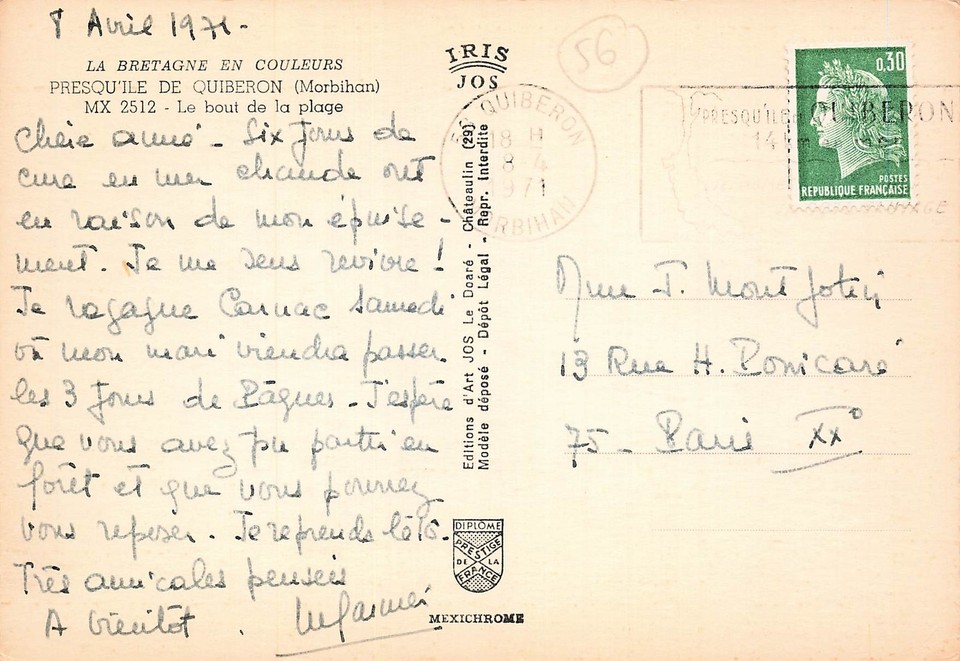 8 Avril 1971.
LA BRETAGNE EN COULEURS
PRESQU'ILE DE QUIBERON (Morbihan)
MX 2512 - Le bout de la plage
Chère amie - Six jours de
cure en mer chaude ont
eu raison de mon épuise-
ment. Je me sens revivre !
Je regagne Carnac samedi
où mon mari viendra passer
les 3 jours de Pâques - J'espère
que vous avez pu partir en
forêt et que vous pourrez
vous reposer. Je reprends le
Très amicales pensées
A bientôt.
IRIS
JOS
Editions d'Art JOS Le Doaré - Châteaulin (29)
Modèle déposé - Dépôt Légal - Repr. Interdite
DIPLOME
PRESTIGE
DE LA
FRANCE
MEXICHROME
56
56 QUIBERON
18 H
8-4
1971
MORBIHAN
PRESQU'ILE QUIBERON
0,30
POSTES
REPUBLIQUE FRANÇAISE
Mme J.
13 Rue H. Poincaré
75 - Paris XX°